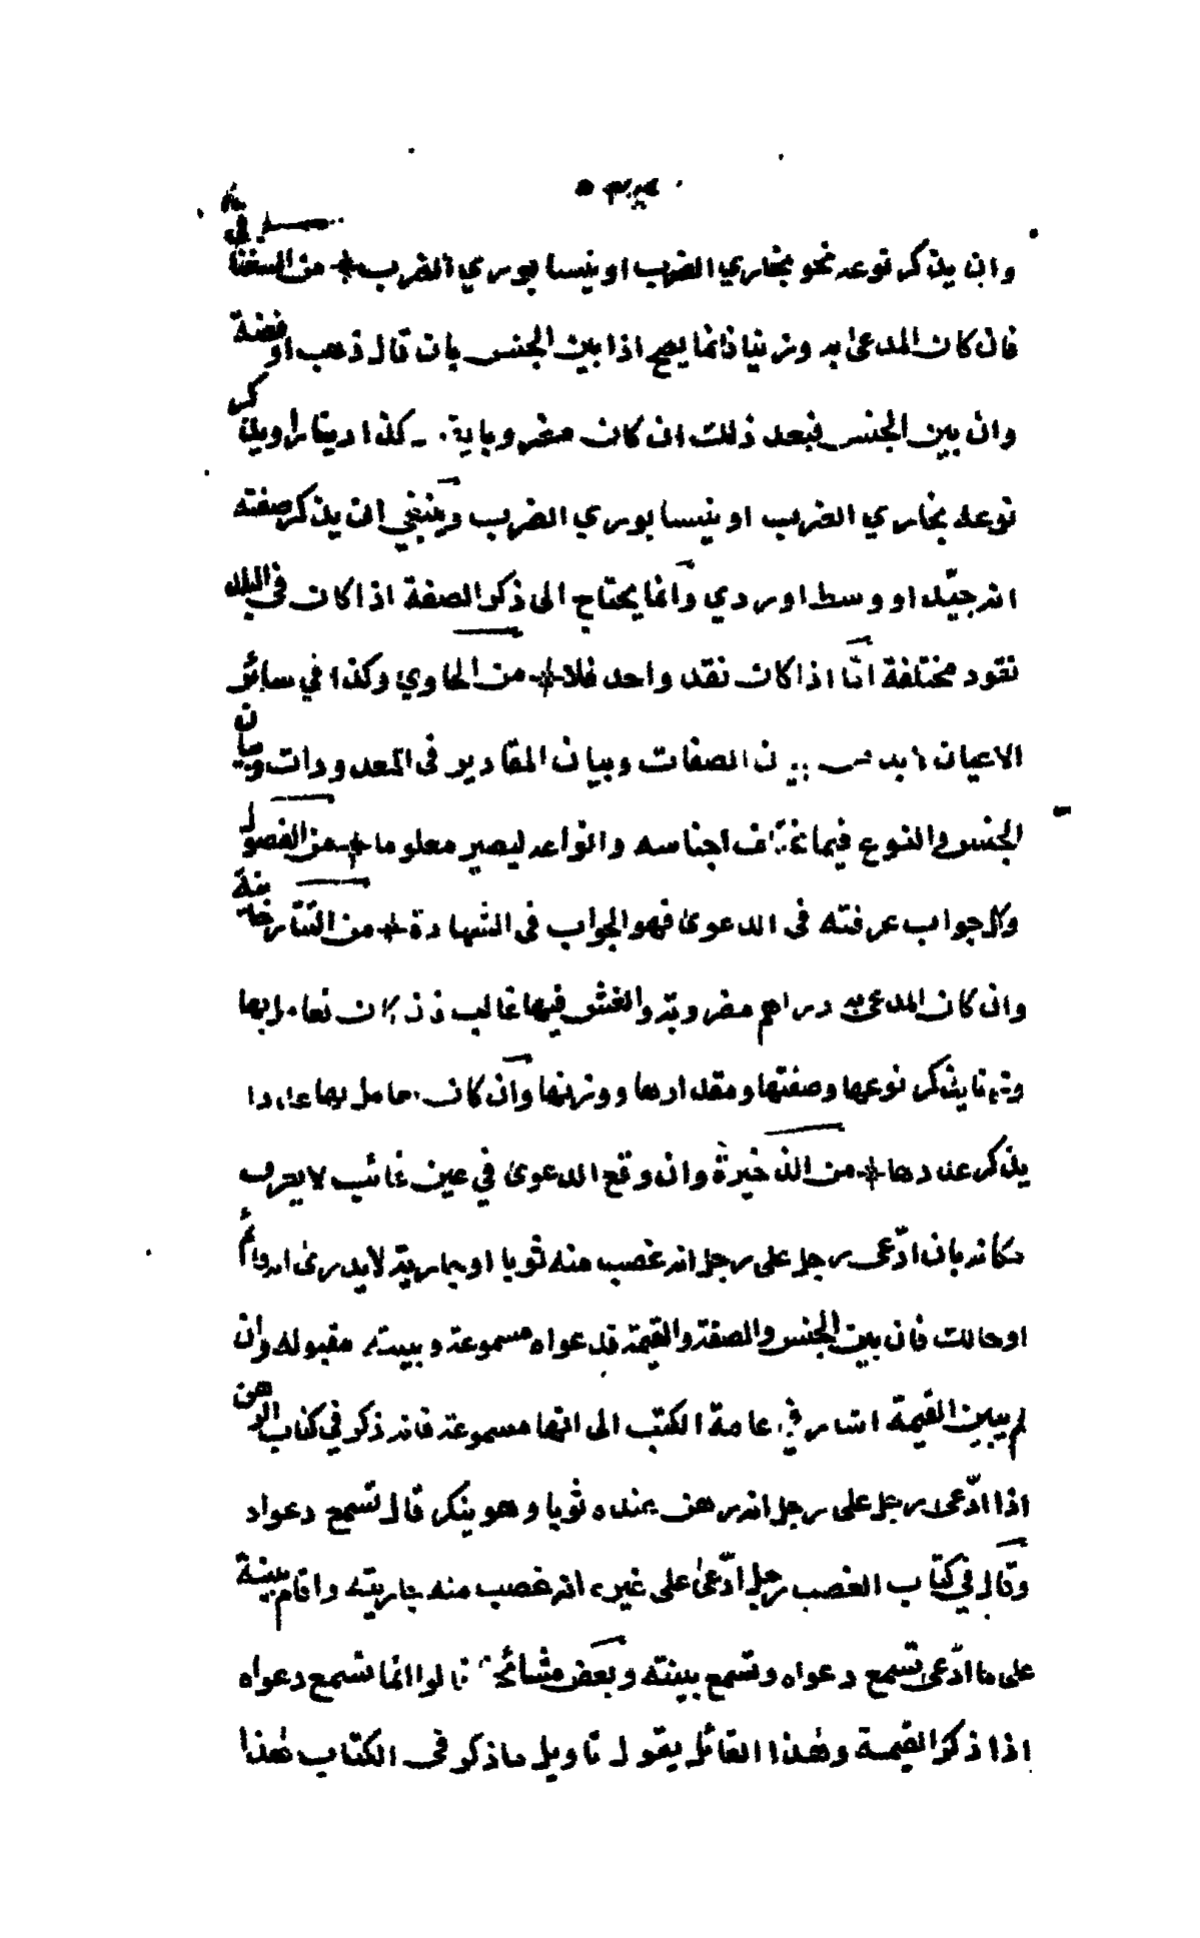 وان يذكر نوعه نحو بخاري الضرب او نيسابوري الضرب من السغناقي
فان كان المدعى به وزنيا فانما يصح اذا بين الجنس بان قال ذهب او فضة
وان بين الجنس فبعد ذلك ان كان مضروبا كذا دينارا ويذكر
نوعه بخاري الضرب او نيسابوري الضرب وينبغي ان يذكر صفته
انه جيّد او وسط او ردي وانما يحتاج الى ذكر الصفة اذا كان في البلد
نقود مختلفة امّا اذا كان نقد واحد فلا من الحاوي وكذا في سائر
الاعيان لابد من بيان الصفات وبيان المقادير في المعدودات وبيان
الجنس والنوع فيما اجناسه وانواعه ليصير معلوما من الفصول
وكل جواب عرفته في الدعوى فهو الجواب في الشهادة من التتارخانية
وان كان المدعى به دراهم مضروبة والغش فيها غالب كان تعامل بها
وزنا يذكر نوعها وصفتها ومقدارها ووزنها وان كان بها عددا
يذكر عددها من الذخيرة وان وقع الدعوى في عين غائب لا يعرف
مكانه بان ادّعى رجل على رجل انه غصب منه ثوبا او جارية لا يدرى انه قائم
او هالك فان بين الجنس والصفة والقيمة فدعواه مسموعة وبينته مقبوله وان
لم يبين القيمة اشار في عامة الكتب الى انها مسموعة فانه ذكر في كتاب الرهن
اذا ادّعى رجل على رجل انه رهن عنده ثوبا وهو ينكر قال تسمع دعواه
وقال في كتاب الغصب رجل ادّعى على غيره انه غصب منه جارية واقام بينة
على ما ادّعى تسمع دعواه وتسمع بينته وبعض مشائخنا قالوا انما تسمع دعواه
اذا ذكر القيمة وهذا القائل يقول تاويل ما ذكر في الكتاب هذا